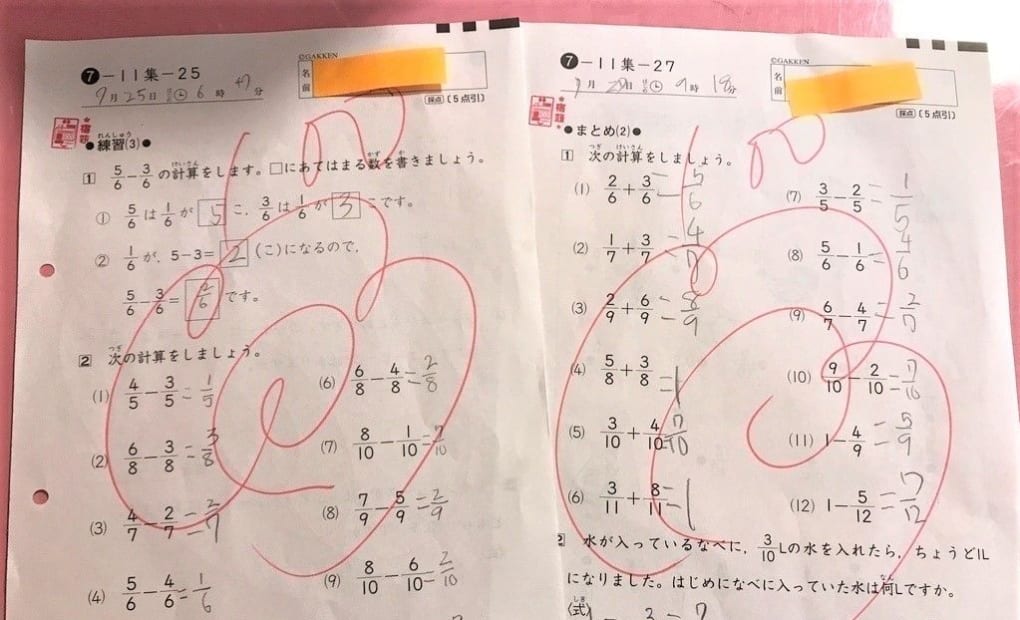 ❼-11集-25
9月25日 6時47分
©GAKKEN
名前
採点〔5点引〕
宿題
●練習(3)●
れんしゅう
1 5/6-3/6の計算をします。□にあてはまる数を書きましょう。
① 5/6は1/6が5こ、3/6は1/6が3こです。
② 1/6が、5-3=2(こ)になるので、
5/6-3/6=2/6です。
2 次の計算をしましょう。
(1) 4/5-3/5=1/5
(2) 6/8-3/8=3/8
(3) 4/7-2/7=2/7
(4) 5/6-4/6=1/6
(6) 6/8-4/8=2/8
(7) 8/10-1/10=7/10
(8) 7/9-5/9=2/9
(9) 8/10-6/10=2/10
100
❼-11集-27
9時18分
©GAKKEN
名前
採点〔5点引〕
宿題
●まとめ(2)●
1 次の計算をしましょう。
(1) 2/6+3/6=5/6
(2) 1/7+3/7=4/7
(3) 2/9+6/9=8/9
(4) 5/8+3/8=1
(5) 3/10+4/10=7/10
(6) 3/11+8/11=1
(7) 3/5-2/5=1/5
(8) 5/6-1/6=4/6
(9) 6/7-4/7=2/7
(10) 9/10-2/10=7/10
(11) 1-4/9=5/9
(12) 1-5/12=7/12
100
2 水が入っているなべに、3/10Lの水を入れたら、ちょうど1L
になりました。はじめになべに入っていた水は何Lですか。
(式)